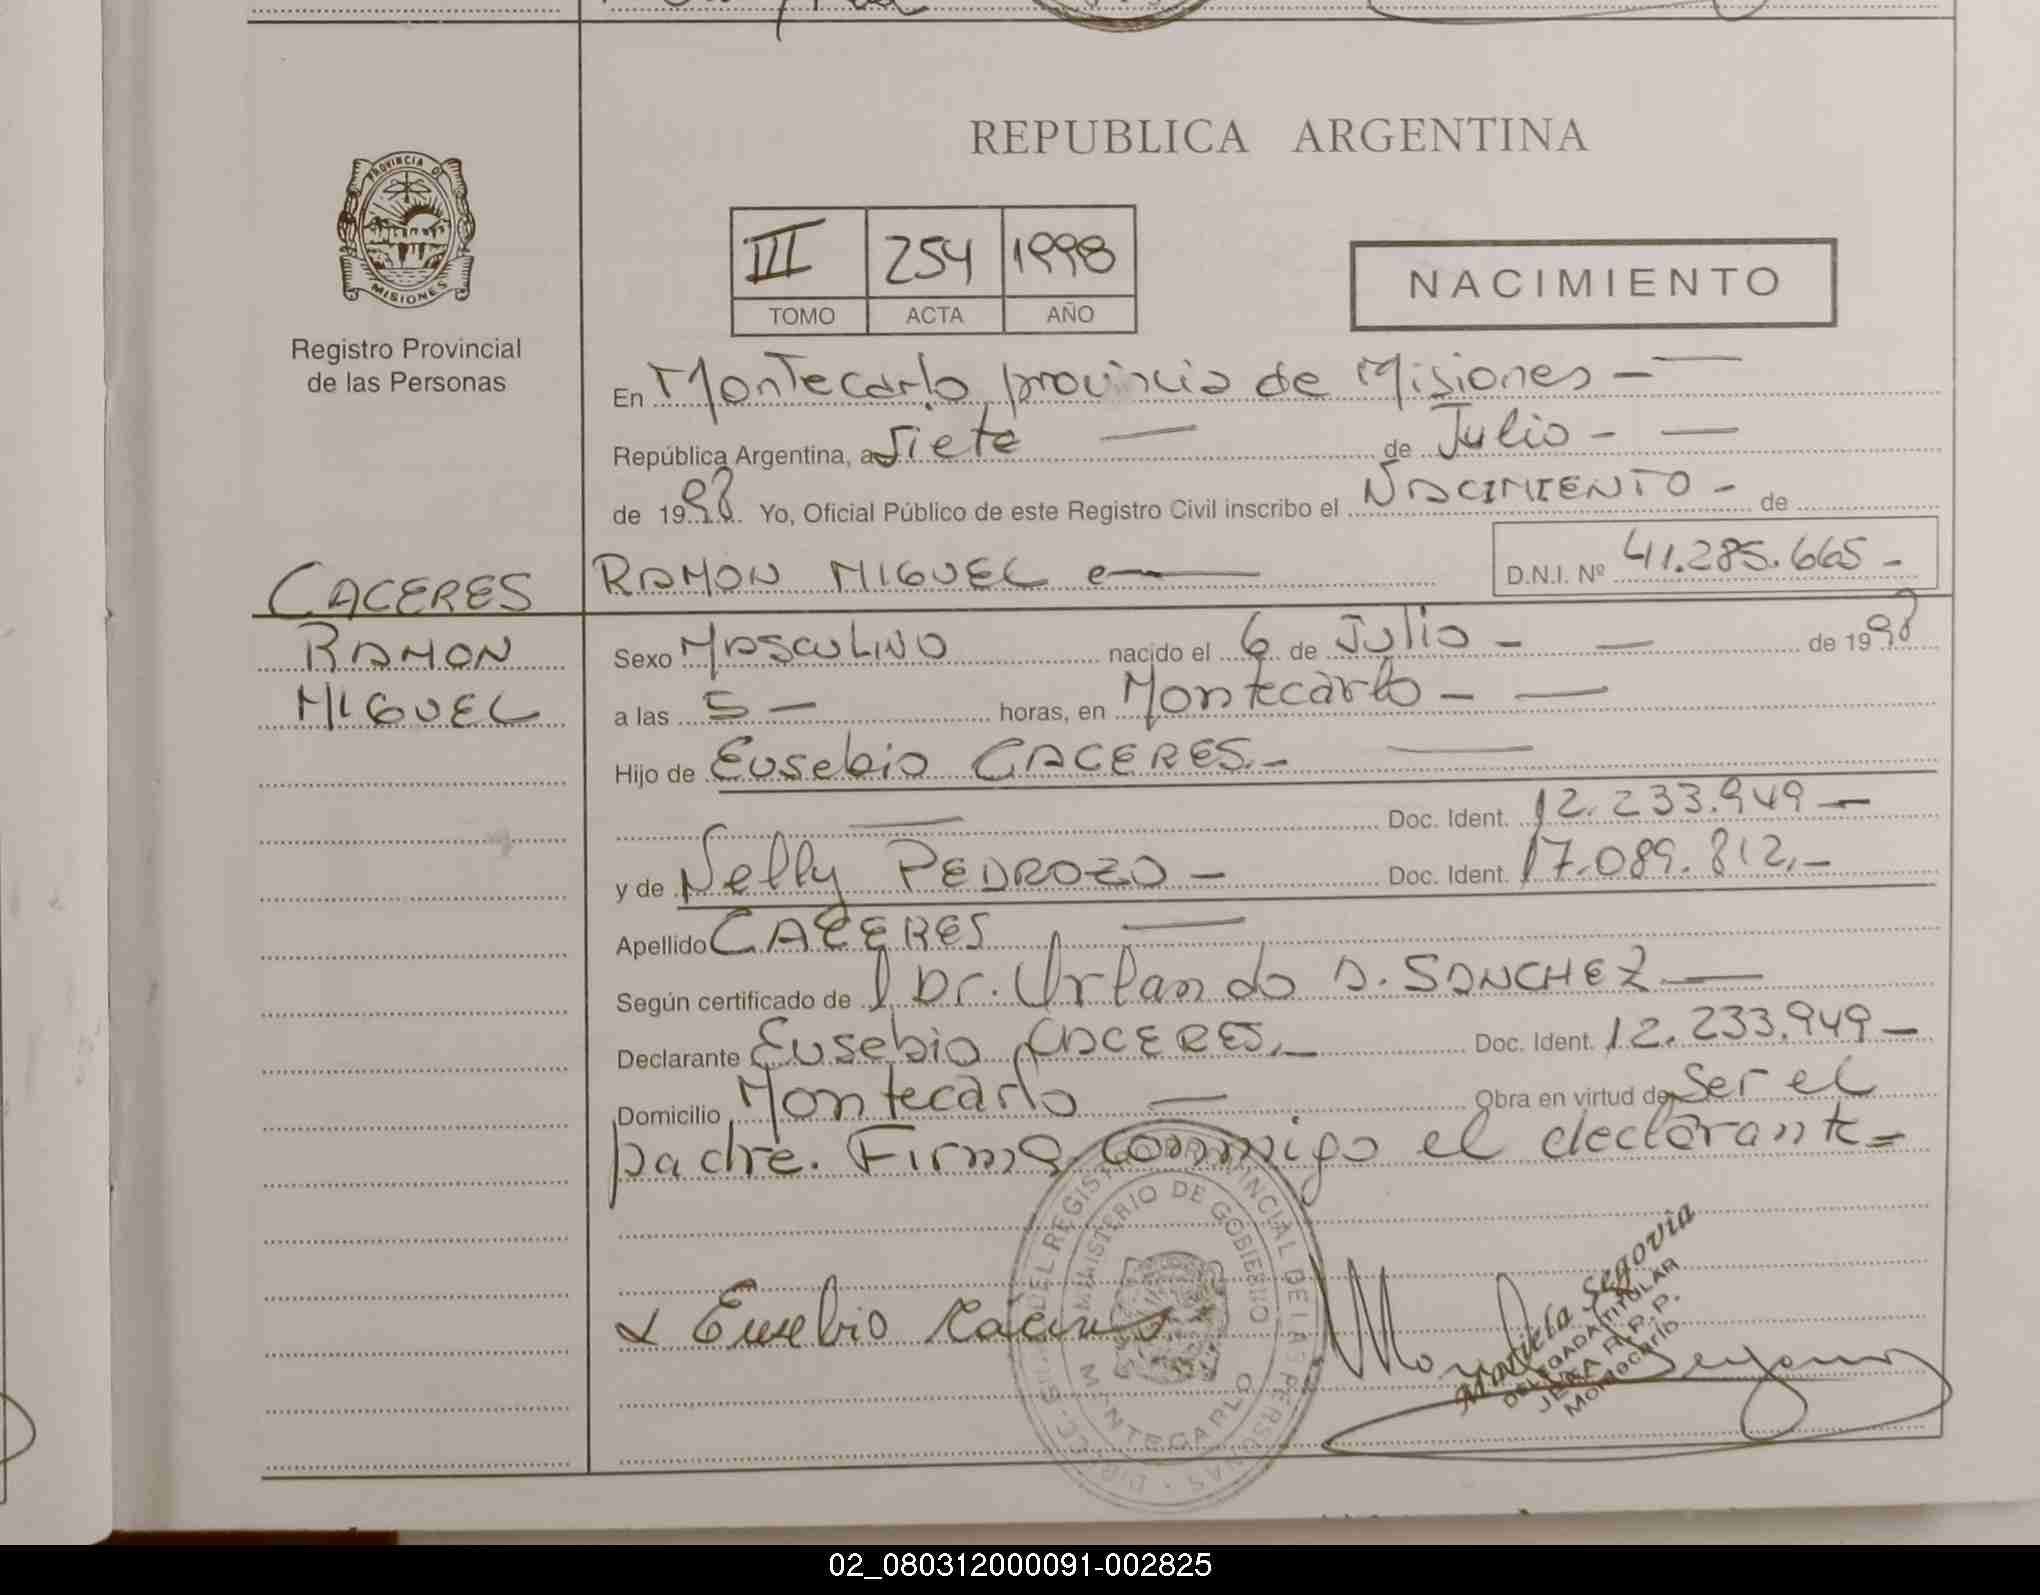 REPUBLICA ARGENTINA
PROVINCIA DE MISIONES
Registro Provincial
de las Personas
III 254 1998
TOMO ACTA AÑO
NACIMIENTO
En Montecarlo provincia de Misiones —
República Argentina, a Siete — de Julio - —
de 1998. Yo, Oficial Público de este Registro Civil inscribo el NACIMIENTO - de
RAMON MIGUEL e— D.N.I. Nº 41.285.665 -
CACERES
RAMON
MIGUEL
Sexo MASCULINO nacido el 6 de Julio - — de 1998
a las 5 — horas, en Montecarlo - —
Hijo de Eusebio CACERES.- —
— Doc. Ident. 12.233.949 —
y de Nelly PEDROZO - Doc. Ident. 17.089.812.-
Apellido CACERES —
Según certificado de l Dr. Orlando A. SANCHEZ —
Declarante Eusebio CACERES.- Doc. Ident. 12.233.949 -
Domicilio Montecarlo — Obra en virtud de Ser el
padre. Firma conmigo el declarante=
MINISTERIO DE GOBIERNO
MONTECARLO
Eusebio Caceres
Segovia
DELEGADA TITULAR
JEFA R.P.P.
Montecarlo
02_080312000091-002825